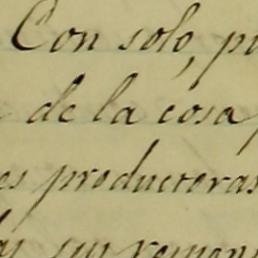 Con solo, p
de la cosa
es productoras
sus